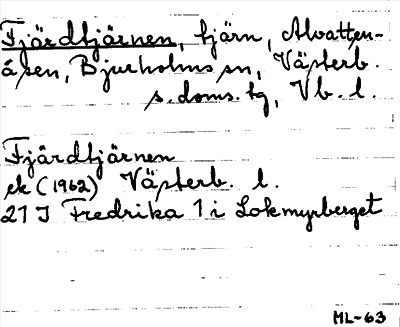 Fjärdtjärnen, tjärn, Alvatten-
åsen, Bjurholms sn, Västerb.
s. doms. tg, Vb. l.
Fjärdtjärnen
ek (1962) Västerb. l.
21 I Fredrika 1 i Lokmyrberget
ML-63